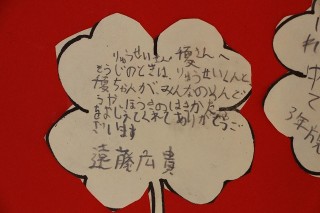 りゅうせいさん 優さんへ
そうじのときは、りゅうせいくんと
優ちゃんが、みんなのめんど
うや、ほうきのはきかた
をおしえてくれてありがとうご
ざいます
遠藤広貴
3年